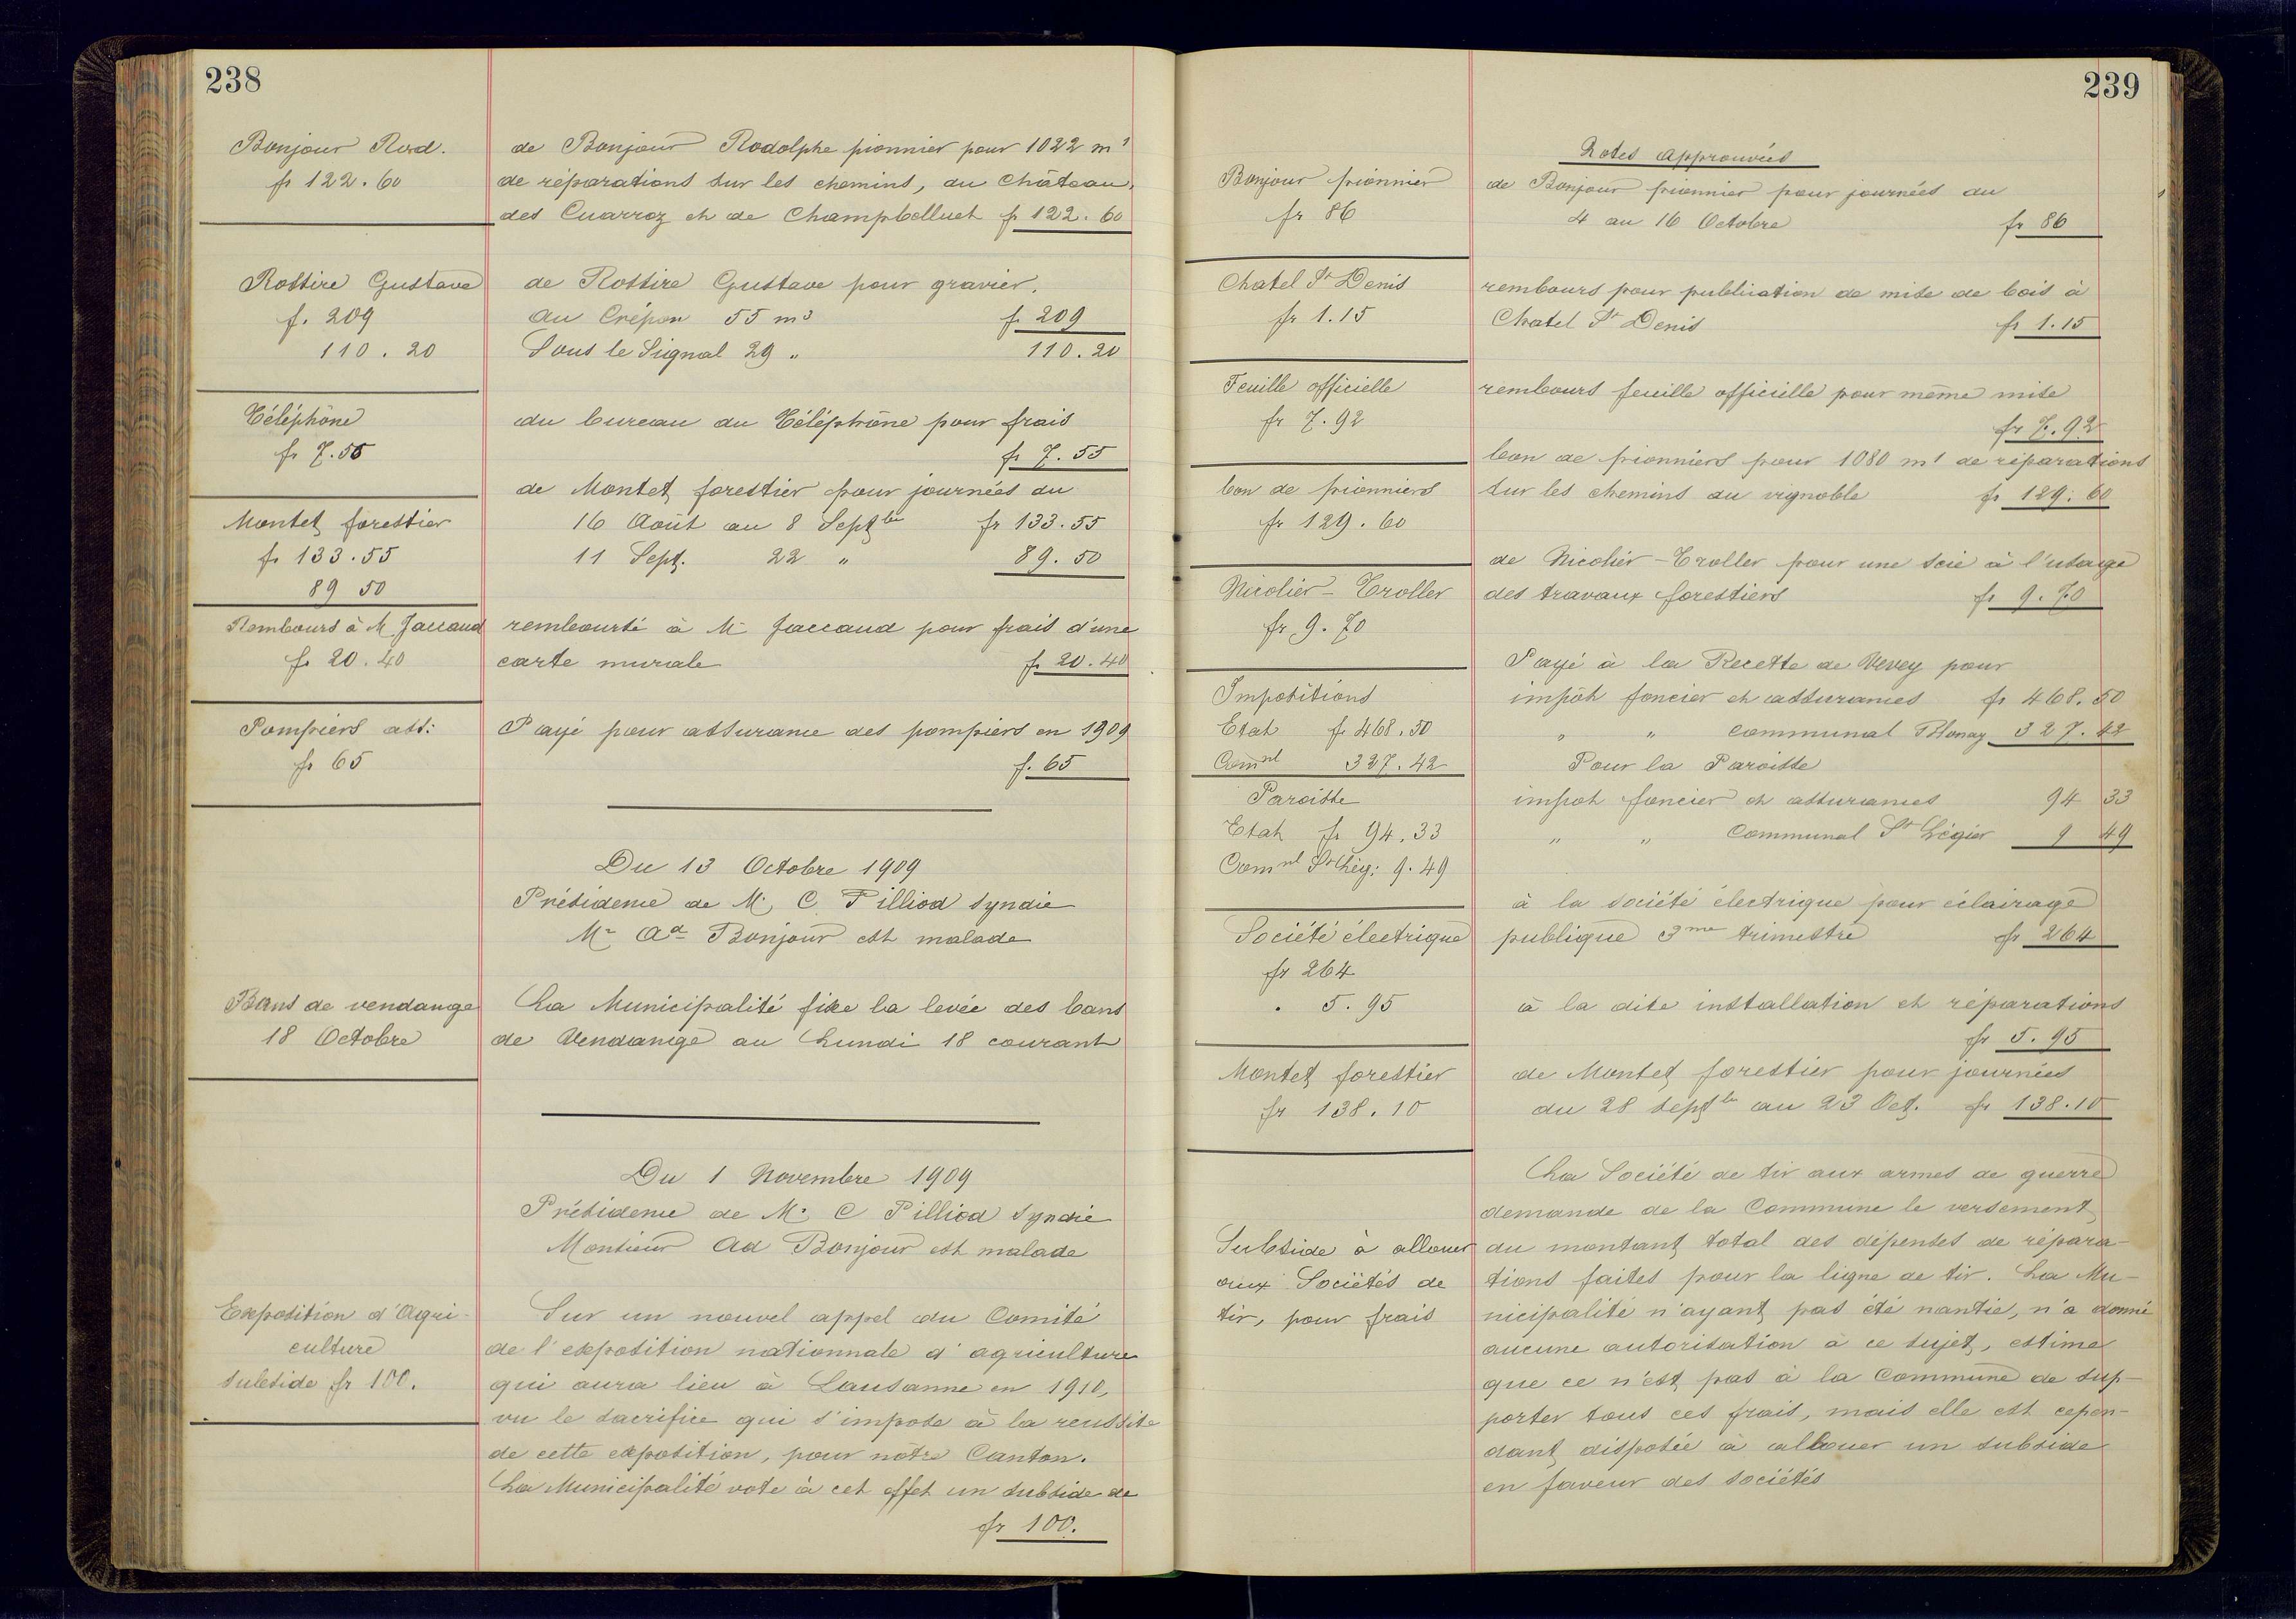 238
Bonjour Rod.
fr 122.60
de Bonjour Rodolphe pionnier pour 1022 m1
de réparations sur les chemins, du Château,
des Cuarroz et de Champbelluet fr 122.60
Rossire Gustave
f. 209
110.20
de Rossire Gustave pour gravier.
au Crépon 55 m3 f. 209
Sous le Signal 29 " 110.20
Téléphone
fr 7.55
du bureau du Téléphone pour frais
fr 7.55
Montet forestier
fr 133.55
89 50
de Montet forestier pour journées du
16 Août au 8 Septbr fr 133.55
11 Sept. 22 " 89.50
Rembours à M Jaccaud
fr 20.40
remboursé à Mr Jaccaud pour frais d'une
carte murale fr 20.40
Pompiers ass:
fr 65
Payé pour assurance des pompiers en 1909
f. 65
Du 13 Octobre 1909
Présidence de M. C Pilliod Syndic
Mr Ad Bonjour est malade
Bans de vendange
18 Octobre
La Municipalité fixe la levée des bans
de Vendange au Lundi 18 courant
Du 1 Novembre 1909
Présidence de M. C Pilliod Syndic
Monsieur Ad Bonjour est malade
Exposition d'Agri-
culture
subside fr 100.
Sur un nouvel appel du Comité
de l'exposition nationnale d'agriculture
qui aura lieu à Lausanne en 1910,
vu le sacrifice qui s'impose à la reussite
de cette exposition, pour nôtre Canton.
La Municipalité vote à cet effet un subside de
fr 100.
239
Notes approuvées
Bonjour pionnier
fr 86
de Bonjour pionnier pour journées du
4 au 16 Octobre fr 86
Chatel St Denis
fr 1.15
rembours pour publication de mise de bois à
Chatel St Denis fr 1.15
Feuille officielle
fr 7.92
rembours feuille officielle pour même mise
fr 7.92
bon de pionniers
fr 129.60
bon de pionniers pour 1080 m1 de réparations
sur les chemins du vignoble fr 129.60
Nicolier-Troller
fr 9.70
de Nicolier-Troller pour une scie à l'usage
des travaux forestiers fr 9.70
Impositions
Etat fr 468.50
Comnl 327.42
Payé à la Recette de Vevey pour
impôt foncier et assurances fr 468.50
" " communal Blonay 327.42
Paroisse
Etat fr 94.33
Comnl St Lég: 9.49
Pour la Paroisse
impôt foncier et assurances 94 33
" " Communal St Légier 9 49
Société électrique
fr 264
" 5.95
à la société électrique pour éclairage
publique 3me trimestre fr 264
à la dite installation et réparations
fr 5.95
Montet forestier
fr 138.10
de Montet forestier pour journées
du 28 septbr au 23 Oct. fr 138.10
Subside à allouer
aux Sociétés de
tir, pour frais
La Société de tir aux armes de guerre
demande de la Commune le versement
du montant total des dépenses de répara-
tions faites pour la ligne de tir. La Mu-
nicipalité n'ayant pas été nantie, n'a donné
aucune autorisation à ce sujet, estime
que ce n'est pas à la Commune de sup-
porter tous ces frais, mais elle est cepen-
dant disposée à allouer un subside
en faveur des sociétés